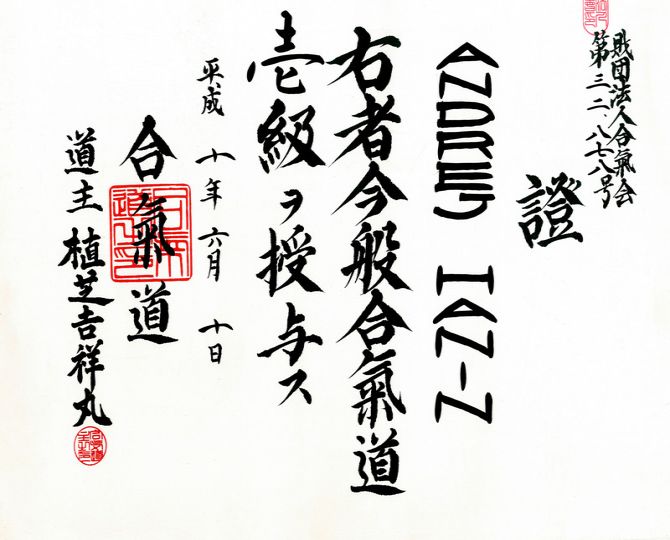 財団法人合氣会
第三二、八七八号
證
ANDREJ HANIN
右者今般合氣道
壱級ヲ授与ス
平成 十年 六月 十日
合氣道
道主 植芝吉祥丸